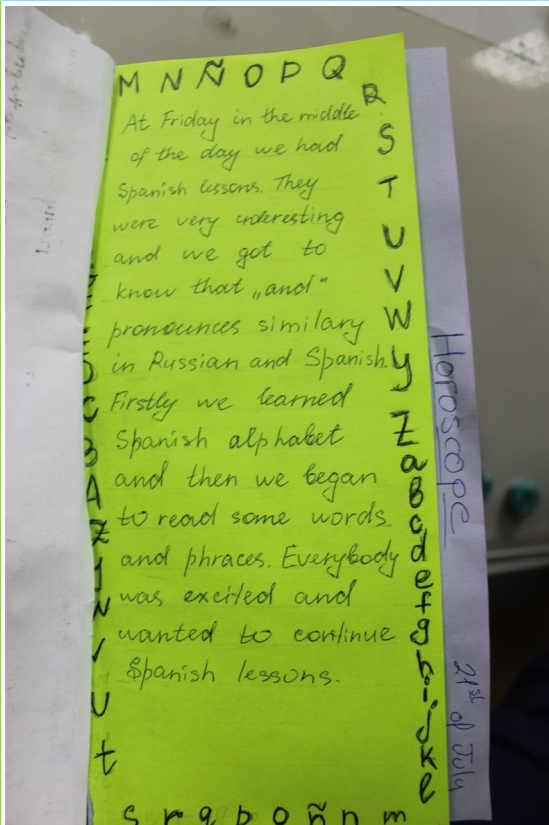 M N Ñ O P Q
R
S
T
U
V
W
Y
Z
a
B
c
d
e
f
g
h
i
j
k
l
m
n
ñ
o
p
q
r
s
t
U
At Friday in the middle
of the day we had
Spanish lessons. They
were very interesting
and we got to
know that „and“
pronounces similary
in Russian and Spanish.
Firstly we learned
Spanish alphabet
and then we began
to read some words
and phrases. Everybody
was excited and
wanted to continue
Spanish lessons.
Horoscope
21st of July